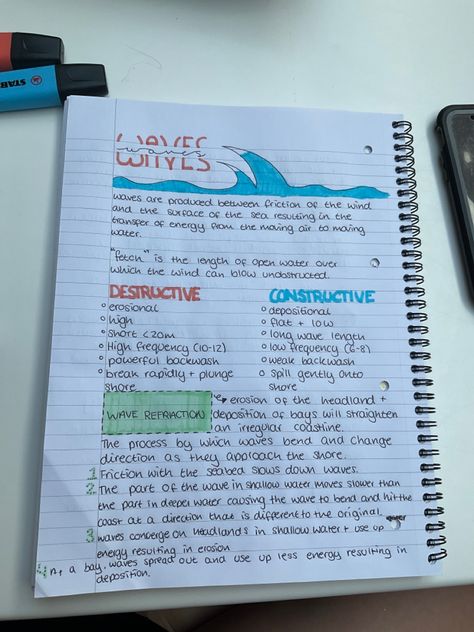 STAB
WAVES
waves
waves are produced between friction of the wind
and the surface of the sea resulting in the
transfer of energy from the moving air to moving
water.
"fetch" is the length of open water over
which the wind can blow unobstructed.
DESTRUCTIVE
o erosional
o high
o short <20m
o High frequency (10-12)
o powerful backwash
o break rapidly + plunge
shore
CONSTRUCTIVE
o depositional
o flat + low
o long wave length
o low frequency (6-8)
o weak backwash
o spill gently onto
shore
WAVE REFRACTION
erosion of the headland +
deposition of bays will straighten
an irregular coastline.
The process by which waves bend and change
direction as they approach the shore.
1 Friction with the seabed slows down waves.
2 The part of the wave in shallow water moves slower than
the part in deeper water causing the wave to bend and hit the
coast at a direction that is different to the original.
3 waves converge on headlands in shallow water + use up
energy resulting in erosion
4 In a bay, waves spread out and use up less energy resulting in
deposition.